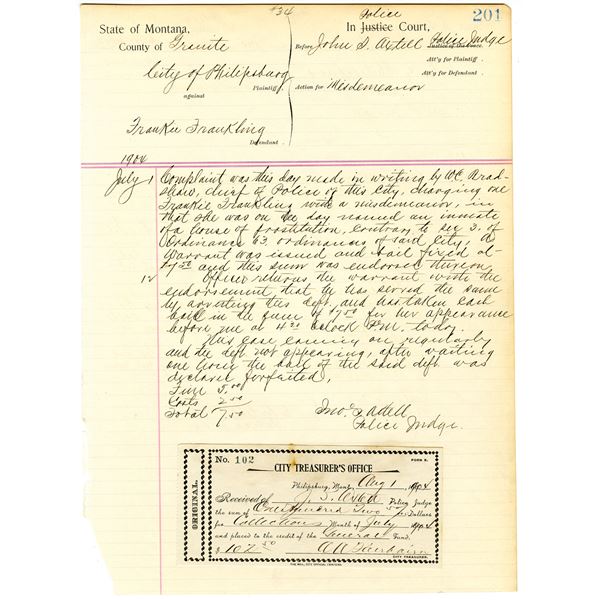 #34
201
State of Montana,
County of Granite
City of Philipsburg
Plaintiff.
against
Frankie Frankling
Defendant.
Police
In Justice Court,
Before John S. Axtell Police Judge
Justice of the Peace.
Att'y for Plaintiff.
Att'y for Defendant.
Action for Misdemeanor
1904
July 1 Complaint was this day made in writing by W.C. Brad-
shaw, chief of Police of this City, charging one
Frankie Frankling with a misdemeanor, in
that she was on the day named an inmate
of a house of prostitution, contrary to sec 2. of
Ordinance 63 ordinances of said City, A
warrant was issued and bail fixed at
$7.50 and this sum was endorsed thereon.
12 Officer returns the warrant with the
endorsement that he has served the same
by arresting this deft, and has taken cash
bail in the sum of $7.50 for her appearance
before me at 4.30 oclock P.M. today.
This case coming on regularly
and the deft not appearing, after waiting
one hour the bail of the said deft was
declared forfeited,
Fine 5.00
Costs 2.50
Total 7.50
Jno. S. Axtell
Police Judge.
ORIGINAL.
No. 102
FORM 8.
CITY TREASURER'S OFFICE
Philipsburg, Mont., Aug 1 1904
Received of J. S. Axtell Police Judge
the sum of One Hundred Two 50/ Dollars
for Collections Month of July 1904
and placed to the credit of the General Fund.
$102 50
CITY TREASURER.